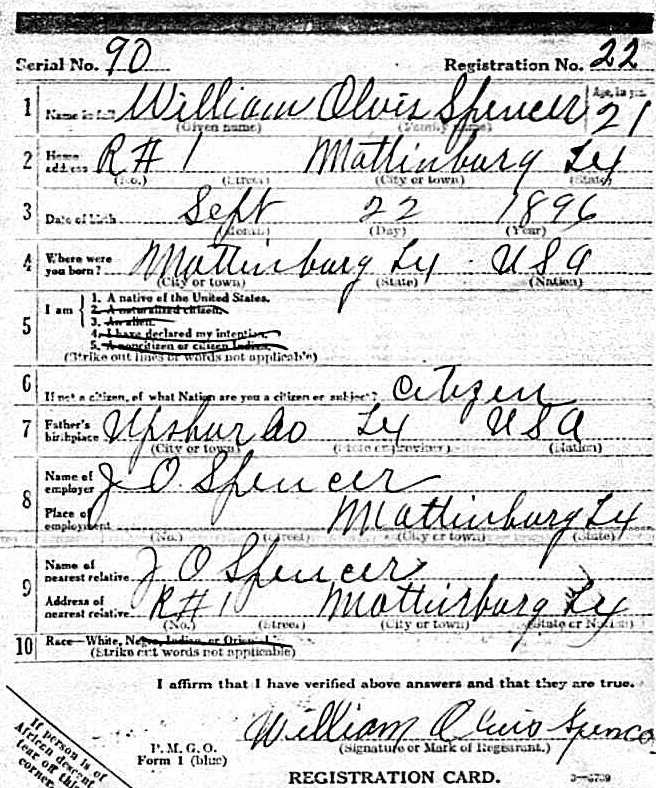 Serial No. 90 Registration No. 22
1 Name in full William Olvis Spencer Age, in yrs. 21
(Given name) (Family name)
2 Home address R#1 Mattinburg Tex
(No.) (Street) (City or town) (State)
3 Date of birth Sept 22 1896
(Month) (Day) (Year)
4 Where were you born? Mattinburg Tex USA
(City or town) (State) (Nation)
5 I am
1. A native of the United States.
2. A naturalized citizen.
3. An alien.
4. I have declared my intention.
5. A noncitizen or citizen Indian.
(Strike out lines or words not applicable)
6 If not a citizen, of what Nation are you a citizen or subject? Citizen
7 Father's birthplace Upshur Co Tex USA
(City or town) (State or province) (Nation)
8 Name of employer J O Spencer
Place of employment Mattinburg Tex
(No.) (Street) (City or town) (State)
9 Name of nearest relative J O Spencer
Address of nearest relative R#1 Mattinburg Tex
(No.) (Street) (City or town) (State or Nation)
10 Race—White, Negro, Indian, or Oriental
(Strike out words not applicable)
I affirm that I have verified above answers and that they are true.
William Olvis Spencer
(Signature or Mark of Registrant.)
P.M.G.O.
Form 1 (blue)
REGISTRATION CARD.
If person is of
African descent
tear off this
corner.